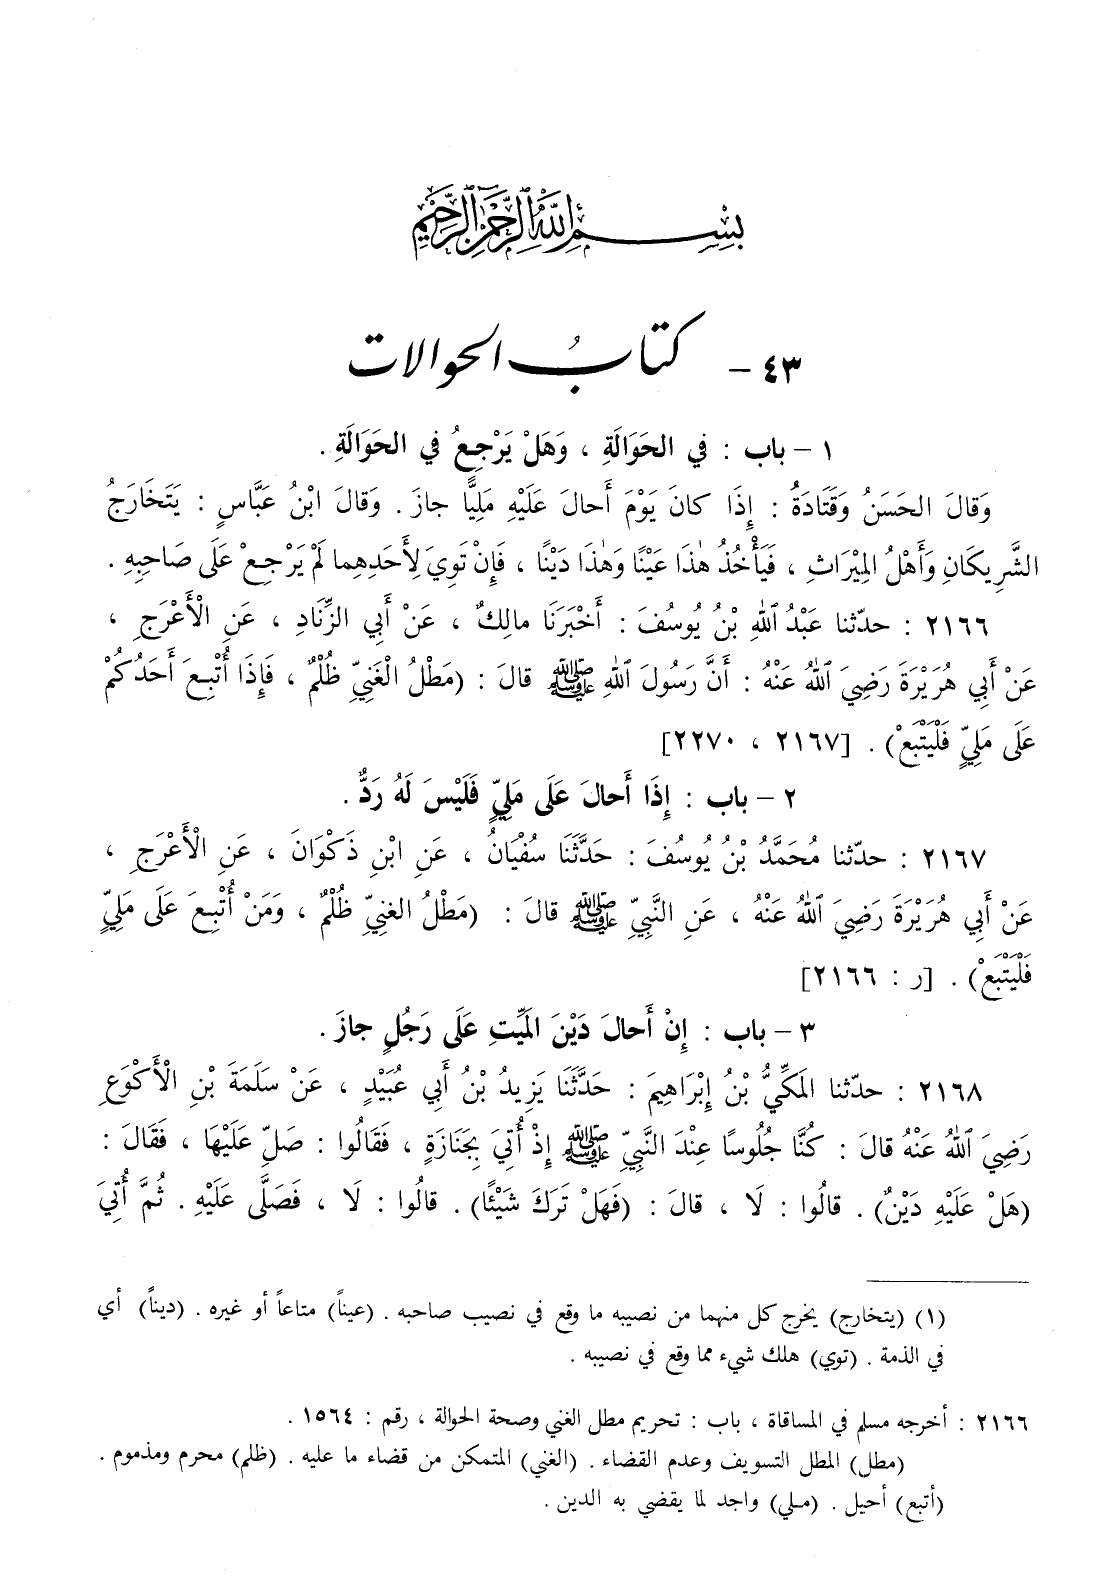 بِسْمِ اللهِ الرَّحْمٰنِ الرَّحِيمِ
٤٣ - كتابُ الحوالات
١ - باب : في الحَوَالَةِ ، وَهَلْ يَرْجِعُ في الحَوَالَةِ .
وَقالَ الحَسَنُ وَقَتَادَةُ : إِذَا كانَ يَوْمَ أَحالَ عَلَيْهِ مَلِيًّا جازَ . وَقالَ ابْنُ عَبَّاسٍ : يَتَخَارَجُ
الشَّرِيكَانِ وَأَهْلُ المِيرَاثِ ، فَيَأْخُذُ هٰذَا عَيْنًا وَهٰذَا دَيْنًا ، فَإِنْ تَوِيَ لِأَحَدِهِما لَمْ يَرْجِعْ عَلَى صَاحِبِهِ .
٢١٦٦ : حدّثنا عَبْدُ اللهِ بْنُ يُوسُفَ : أَخْبَرَنَا مالِكٌ ، عَنْ أَبِي الزِّنَادِ ، عَنِ الْأَعْرَجِ ،
عَنْ أَبِي هُرَيْرَةَ رَضِيَ اللهُ عَنْهُ : أَنَّ رَسُولَ اللهِ ﷺ قالَ : (مَطْلُ الْغَنِيِّ ظُلْمٌ ، فَإِذَا أُتْبِعَ أَحَدُكُمْ
عَلَى مَلِيٍّ فَلْيَتْبَعْ) . [٢١٦٧ ، ٢٢٧٠]
٢ - باب : إِذَا أَحالَ عَلَى مَلِيٍّ فَلَيْسَ لَهُ رَدٌّ .
٢١٦٧ : حدّثنا مُحَمَّدُ بْنُ يُوسُفَ : حَدَّثَنَا سُفْيَانُ ، عَنِ ابْنِ ذَكْوَانَ ، عَنِ الْأَعْرَجِ ،
عَنْ أَبِي هُرَيْرَةَ رَضِيَ اللهُ عَنْهُ ، عَنِ النَّبِيِّ ﷺ قالَ : (مَطْلُ الغنِيِّ ظُلْمٌ ، وَمَنْ أُتْبِعَ عَلَى مَلِيٍّ
فَلْيَتْبَعْ) . [ر : ٢١٦٦]
٣ - باب : إِنْ أَحالَ دَيْنَ المَيِّتِ عَلَى رَجُلٍ جازَ .
٢١٦٨ : حدّثنا المَكِّيُّ بْنُ إِبْرَاهِيمَ : حَدَّثَنَا يَزِيدُ بْنُ أَبِي عُبَيْدٍ ، عَنْ سَلَمَةَ بْنِ الْأَكْوَعِ
رَضِيَ اللهُ عَنْهُ قالَ : كُنَّا جُلُوسًا عِنْدَ النَّبِيِّ ﷺ إِذْ أُتِيَ بِجَنَازَةٍ ، فَقَالُوا : صَلِّ عَلَيْهَا ، فَقَالَ :
(هَلْ عَلَيْهِ دَيْنٌ) . قالُوا : لَا ، قالَ : (فَهَلْ تَرَكَ شَيْئًا) . قالُوا : لَا ، فَصَلَّى عَلَيْهِ . ثُمَّ أُتِيَ
(١) (يتخارج) يخرج كل منهما من نصيبه ما وقع في نصيب صاحبه . (عيناً) متاعاً أو غيره . (ديناً) أي
في الذمة . (توي) هلك شيء مما وقع في نصيبه .
٢١٦٦ : أخرجه مسلم في المساقاة ، باب : تحريم مطل الغني وصحة الحوالة ، رقم : ١٥٦٤ .
(مطل) المطل التسويف وعدم القضاء . (الغني) المتمكن من قضاء ما عليه . (ظلم) محرم ومذموم .
(أتبع) أحيل . (ملي) واجد لما يقضي به الدين .